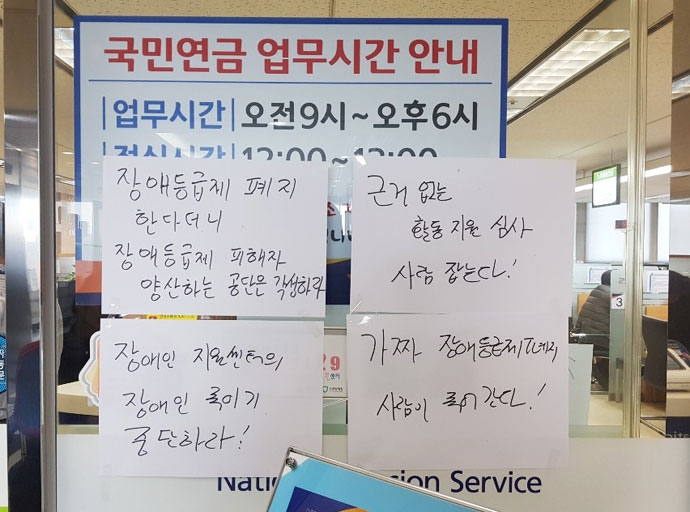 국민연금 업무시간 안내
업무시간 오전9시~오후6시
점심시간 12:00~13:00
장애등급제 폐지
한다더니
장애등급제 피해자
양산하는 공단은 각성하라
근거 없는
활동지원 심사
사람 잡는다!
장애인 지원센터의
장애인 죽이기
중단하라!
가짜 장애등급제폐지
사람이 죽어간다!
29
3
National Pension Service